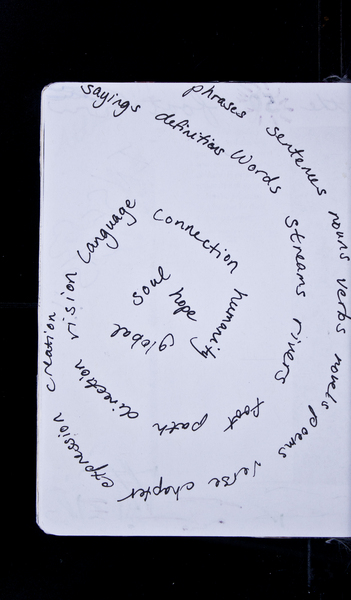 sayings definitions Words streams rivers foot path direction vision Language connection humanity global soul hope
phrases sentences nouns verbs novels poems verse chapter expression creation